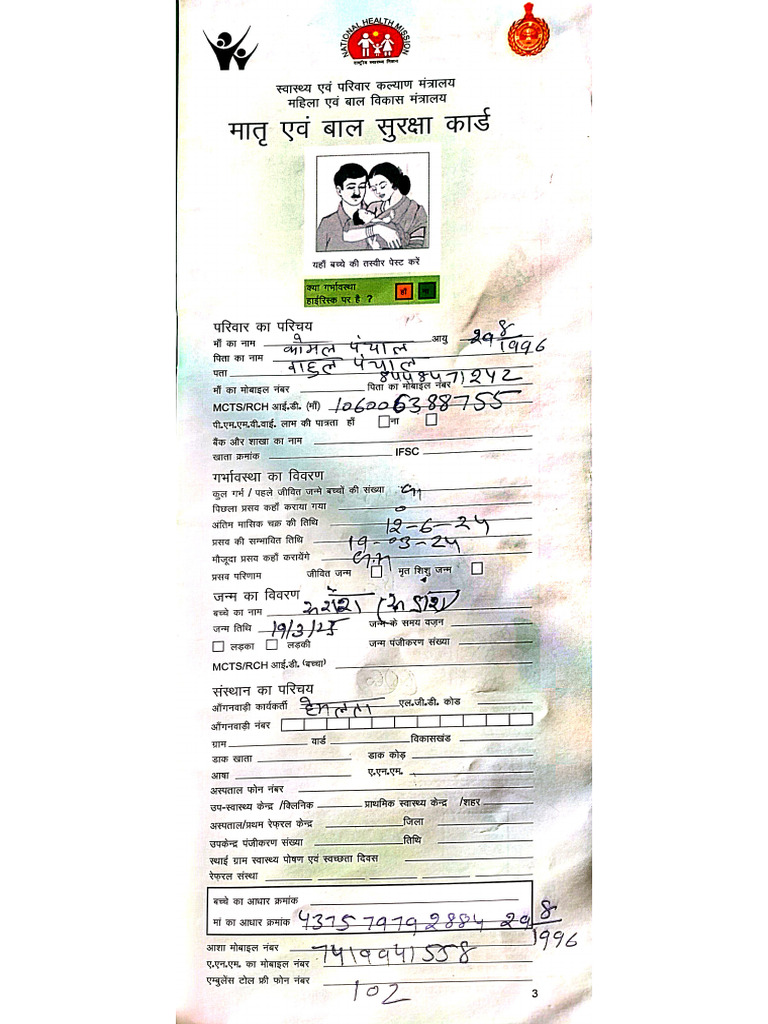 NATIONAL HEALTH MISSION
राष्ट्रीय स्वास्थ्य मिशन
स्वास्थ्य एवं परिवार कल्याण मंत्रालय
महिला एवं बाल विकास मंत्रालय
मातृ एवं बाल सुरक्षा कार्ड
यहाँ बच्चे की तस्वीर पेस्ट करें
क्या गर्भावस्था
हाईरिस्क पर है ? हाँ ना
परिवार का परिचय
माँ का नाम कोमल पंचाल आयु 29/8/1996
पिता का नाम राहुल पंचाल
पता
माँ का मोबाइल नंबर पिता का मोबाइल नंबर
MCTS/RCH आई.डी. (माँ) 106006388755
पी.एम.एम.वी.वाई. लाभ की पात्रता हाँ ना
बैंक और शाखा का नाम
खाता क्रमांक IFSC
गर्भावस्था का विवरण
कुल गर्भ / पहले जीवित जन्मे बच्चों की संख्या
पिछला प्रसव कहाँ कराया गया
अंतिम मासिक चक्र की तिथि 12-6-24
प्रसव की सम्भावित तिथि 19-03-25
मौजूदा प्रसव कहाँ करायेंगे
प्रसव परिणाम जीवित जन्म मृत शिशु जन्म
जन्म का विवरण
बच्चे का नाम
जन्म तिथि 19/3/25 जन्म के समय वज़न
लड़का लड़की जन्म पंजीकरण संख्या
MCTS/RCH आई.डी. (बच्चा)
संस्थान का परिचय
आँगनवाड़ी कार्यकर्ती हेमलता एल.जी.डी. कोड
आँगनवाड़ी नंबर
ग्राम वार्ड विकासखंड
डाक खाता डाक कोड़
आषा ए.एन.एम.
अस्पताल फोन नंबर
उप-स्वास्थ्य केन्द्र /क्लिनिक प्राथमिक स्वास्थ्य केन्द्र /शहर
अस्पताल/प्रथम रेफ़रल केन्द्र जिला
उपकेन्द्र पंजीकरण संख्या तिथि
स्थाई ग्राम स्वास्थ्य पोषण एवं स्वच्छता दिवस
रेफ़रल संस्था
बच्चे का आधार क्रमांक
मां का आधार क्रमांक 4375 7979 2884 29/8/1996
आशा मोबाइल नंबर
ए.एन.एम. का मोबाइल नंबर
एम्बुलेंस टोल फ्री फोन नंबर 102
3